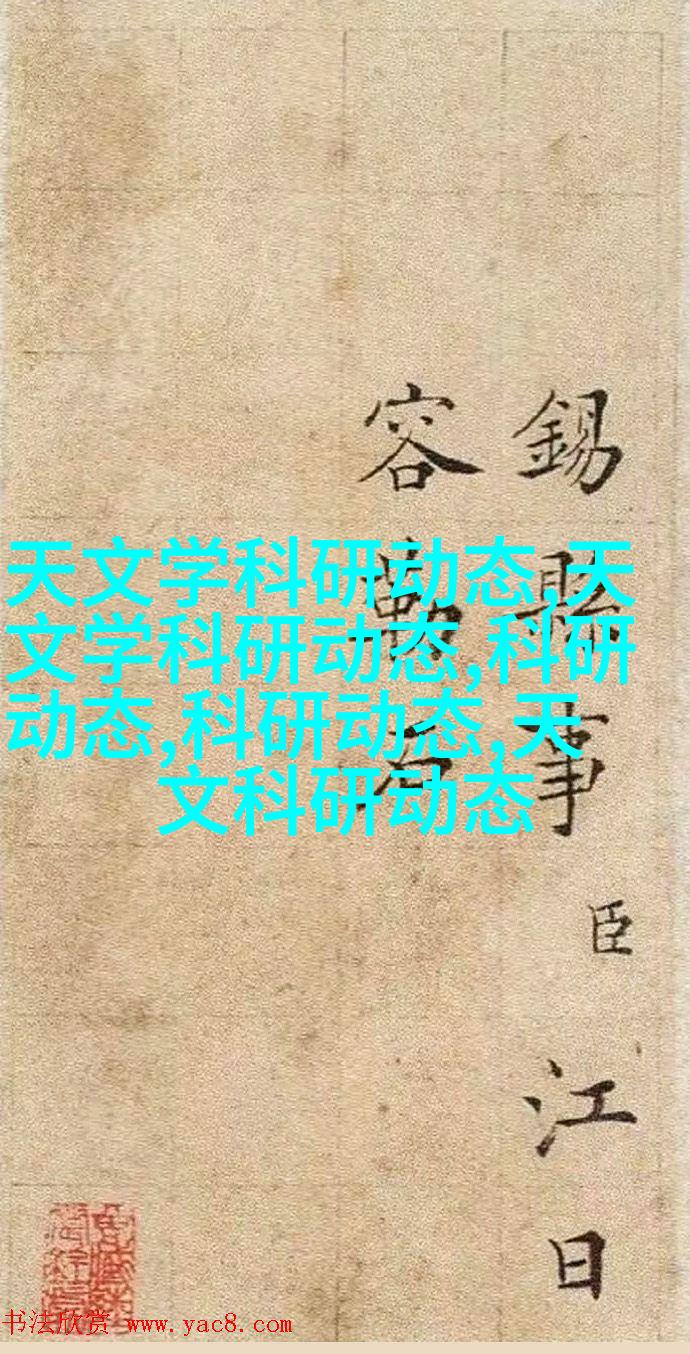 天文学科研动态,天
文学科研动态,科研
动态,科研动态,天
文科研动态
錫縣事臣江日
容勒石
书法欣赏 www.yac8.com